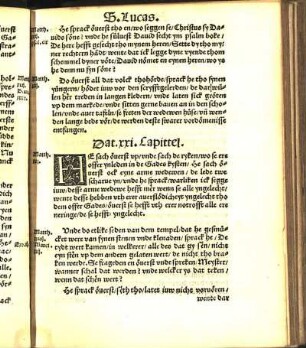 S. Lucas.
He sprack öuerst tho en/wo seggen se/Christus sy Da-
uids söne? vnde he süluest Dauid secht ym psalm boke/
De here hefft gesecht tho mynem heren/Sette dy tho my-
ner rechtern hādt/wente dat ick legge dyne vyende thom
schemmel dyner vöte/Dauid nömet en eynen heren/wo ys
he denn syn söne?
Do öuerst all dat volck thohörde/sprack he tho synen
yüngern/höder iuw vor den scryfftgelerden/de dar wil-
len her treden in langen kledern/vnde laten sick gröten
vp dem markede/vnde sitten gerne bauen an in den scho-
len/vnde auer tafele/se freten der wedewen hüse/vñ wen-
den lange bede vör/de werden deste swarer vordömenisse
entfangen.
Dat. xxi. Capittel.
HE sach öuerst vp/vnde sach de ryken/wo se ere
offer ynleden in de Gades kysten/He sach ö-
uerst ock eyne arme wedewen/de lede twe
scharue yn/vnde he sprack/warliken ick segge
iuw/desse arme wedewe hefft mēr wenn se alle yngelecht/
wente desse hebben vth erer auerflödicheyt yngelecht/tho
dem offer Gades/öuerst se hefft vth erer notrofft alle ere
neringe/de se hefft/yngelecht.
Vnde do etlike seden van dem tempel/dat he gesmü-
cket were van fynen stenen vnde klenaden/sprack he/De
tydt wert kamen/in welkerer/alle des dat gy sēn/nicht
eyn stēn vp dem andern gelaten wert/de nicht tho bra-
ken werde. Se frageden en öuerst vnde spreken/Meyster/
wanner schal dat werden? vnde welker ys dat teken/
wenn dat schēn wert?
He sprack öuerst/sēth tho/latet iuw nicht vorvören/
wente dar